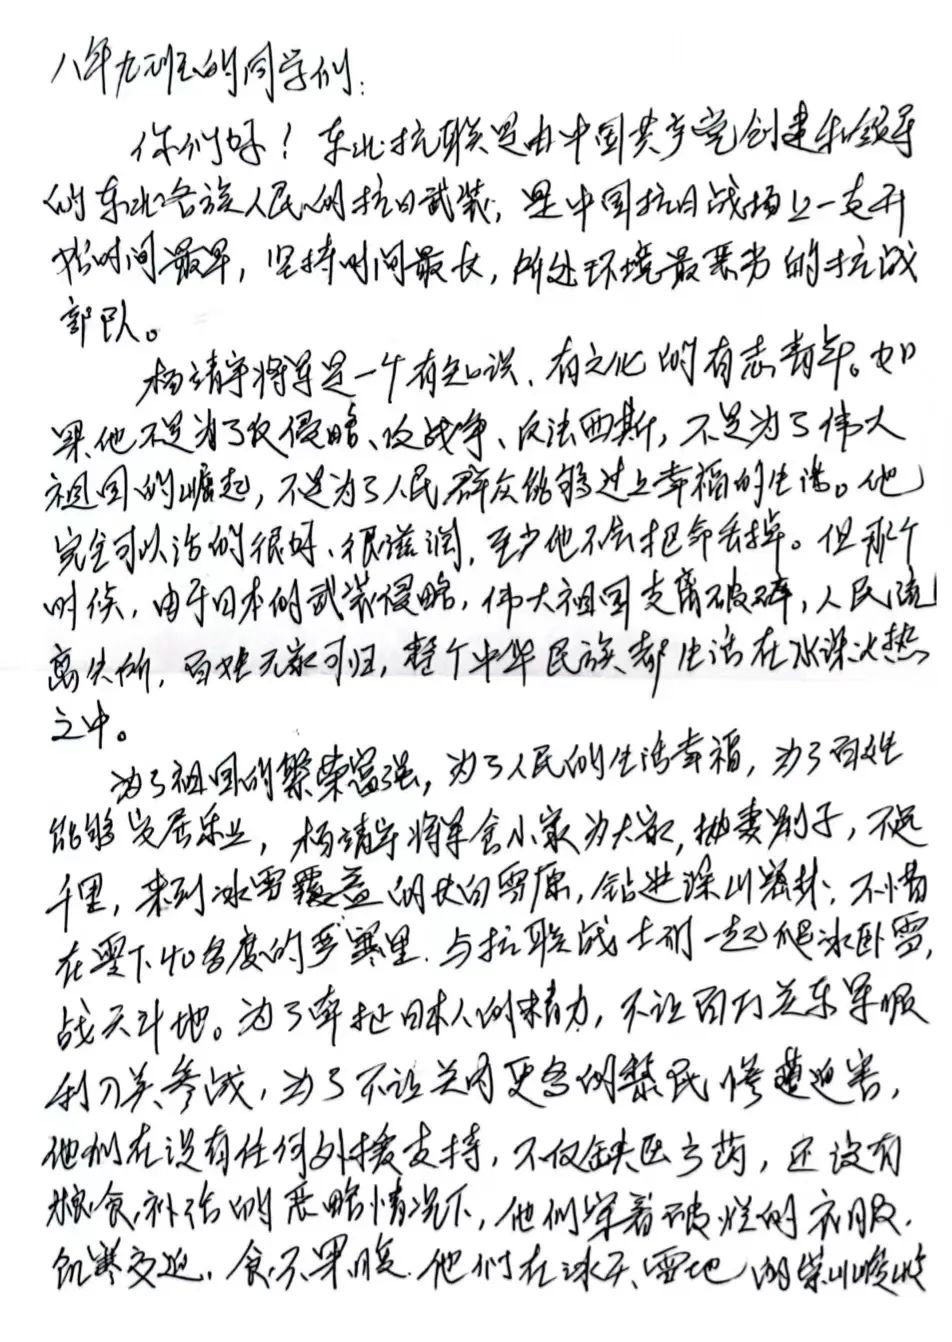 八年九班的同学们:
你们好！东北抗联是由中国共产党创建和领导
的东北各族人民的抗日武装，是中国抗日战场上一支开
始时间最早，坚持时间最长，所处环境最恶劣的抗战
部队。
杨靖宇将军是一个有知识、有文化的有志青年。如
果他不是为了反侵略、反战争、反法西斯，不是为了伟大
祖国的崛起，不是为了人民群众能够过上幸福的生活。他
完全可以活的很好、很滋润，至少他不会把命丢掉。但那个
时候，由于日本的武装侵略，伟大祖国支离破碎，人民流
离失所，百姓无家可归，整个中华民族都生活在水深火热
之中。
为了祖国的繁荣富强，为了人民的生活幸福，为了百姓
能够安居乐业，杨靖宇将军舍小家为大家，抛妻别子，不远
千里，来到冰雪覆盖的长白雪原，钻进深山密林；不惜
在零下40多度的严寒里.与抗联战士们一起爬冰卧雪，
战天斗地。为了牵扯日本人的精力，不让百万关东军顺
利入关参战，为了不让关内更多的黎民惨遭迫害，
他们在没有任何外援支持，不仅缺医少药，还没有
粮食补给的恶略情况下，他们穿着破烂的衣服.
饥寒交迫.食不果腹.他们在冰天雪地的崇山峻岭